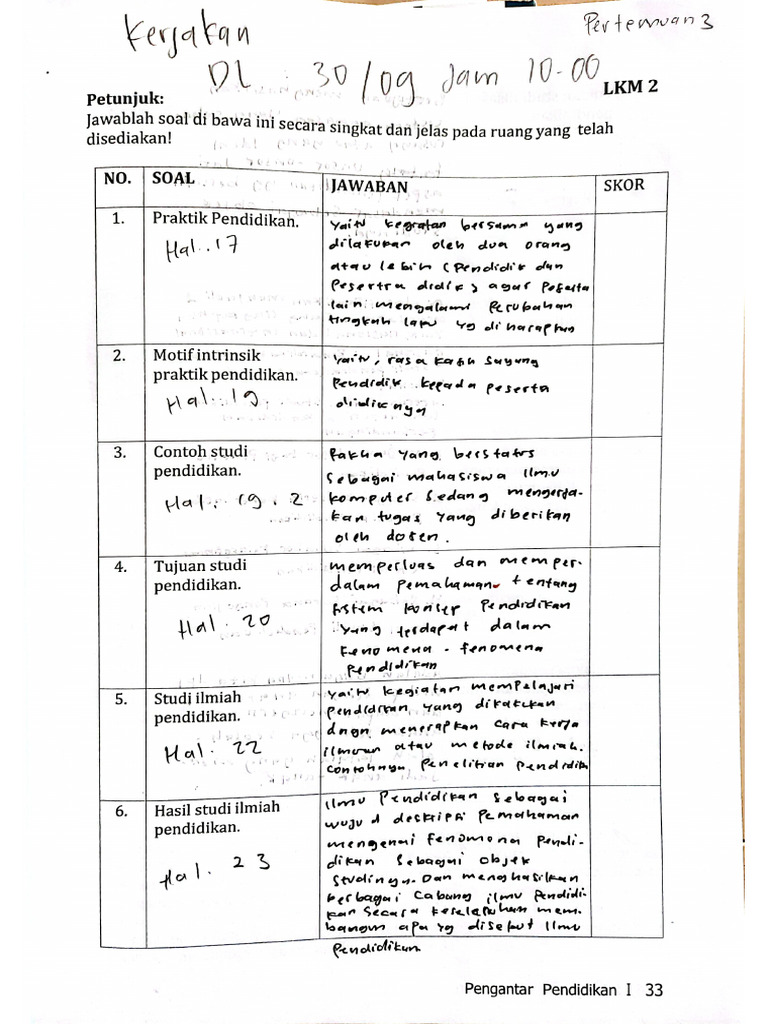 Kerjakan
Pertemuan 3
DL : 30/09 Jam 10.00
LKM 2
Petunjuk:
Jawablah soal di bawa ini secara singkat dan jelas pada ruang yang telah
disediakan!
NO. SOAL JAWABAN SKOR
1. Praktik Pendidikan.
Hal. 17
Yaitu kegiatan bersama yang
dilakukan oleh dua orang
atau lebih (Pendidik dan
Pesertra didik) agar Peserta
lain mengalami Perubahan
tingkah laku yg diharapkan
2. Motif intrinsik
praktik pendidikan.
Hal. 19.
Yaitu, rasa kasih sayang
Pendidik kepada peserta
didiknya
3. Contoh studi
pendidikan.
Hal. 19. 2
yang berstatus
sebagai mahasiswa Ilmu
komputer sedang mengerja-
kan tugas yang diberikan
oleh dosen.
4. Tujuan studi
pendidikan.
Hal. 20
memperluas dan memper-
dalam pemahaman tentang
sistem konsep Pendidikan
yang terdapat dalam
Fenomena - fenomena
Pendidikan
5. Studi ilmiah
pendidikan.
Hal. 22
Yaitu kegiatan mempelajari
pendidikan yang dilakukan
dngn menerapkan cara kerja
ilmuan atau metode ilmiah.
contohnya Penelitian Pendidik
6. Hasil studi ilmiah
pendidikan.
Hal. 23
Ilmu Pendidikan sebagai
wujud deskripsi Pemahaman
mengenai fenomona Pendi-
dikan sebagai objek
studinya. Dan menghasilkan
berbagai Cabang ilmu Pendidi-
kan secara keselaruhan mem-
bangun apa yg disebut Ilmu
Pendidikan
Pengantar Pendidikan I 33